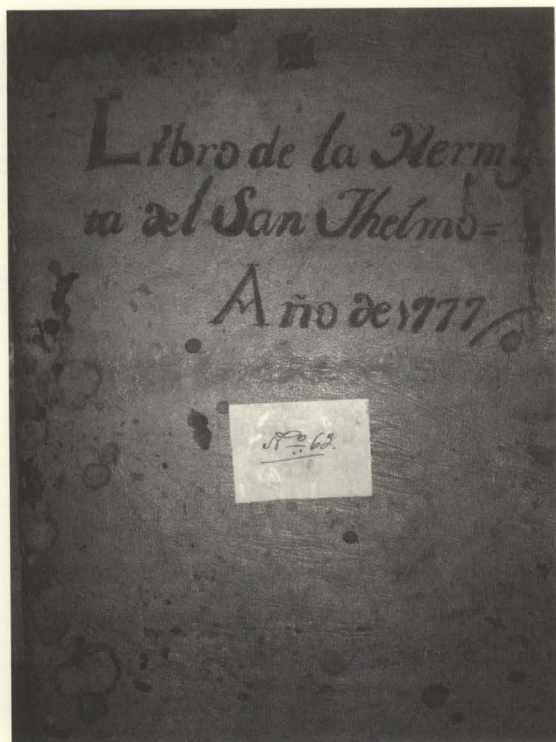 Libro de la Hermy
ta del San Thelmo=
Año de 1777
Nº 62.